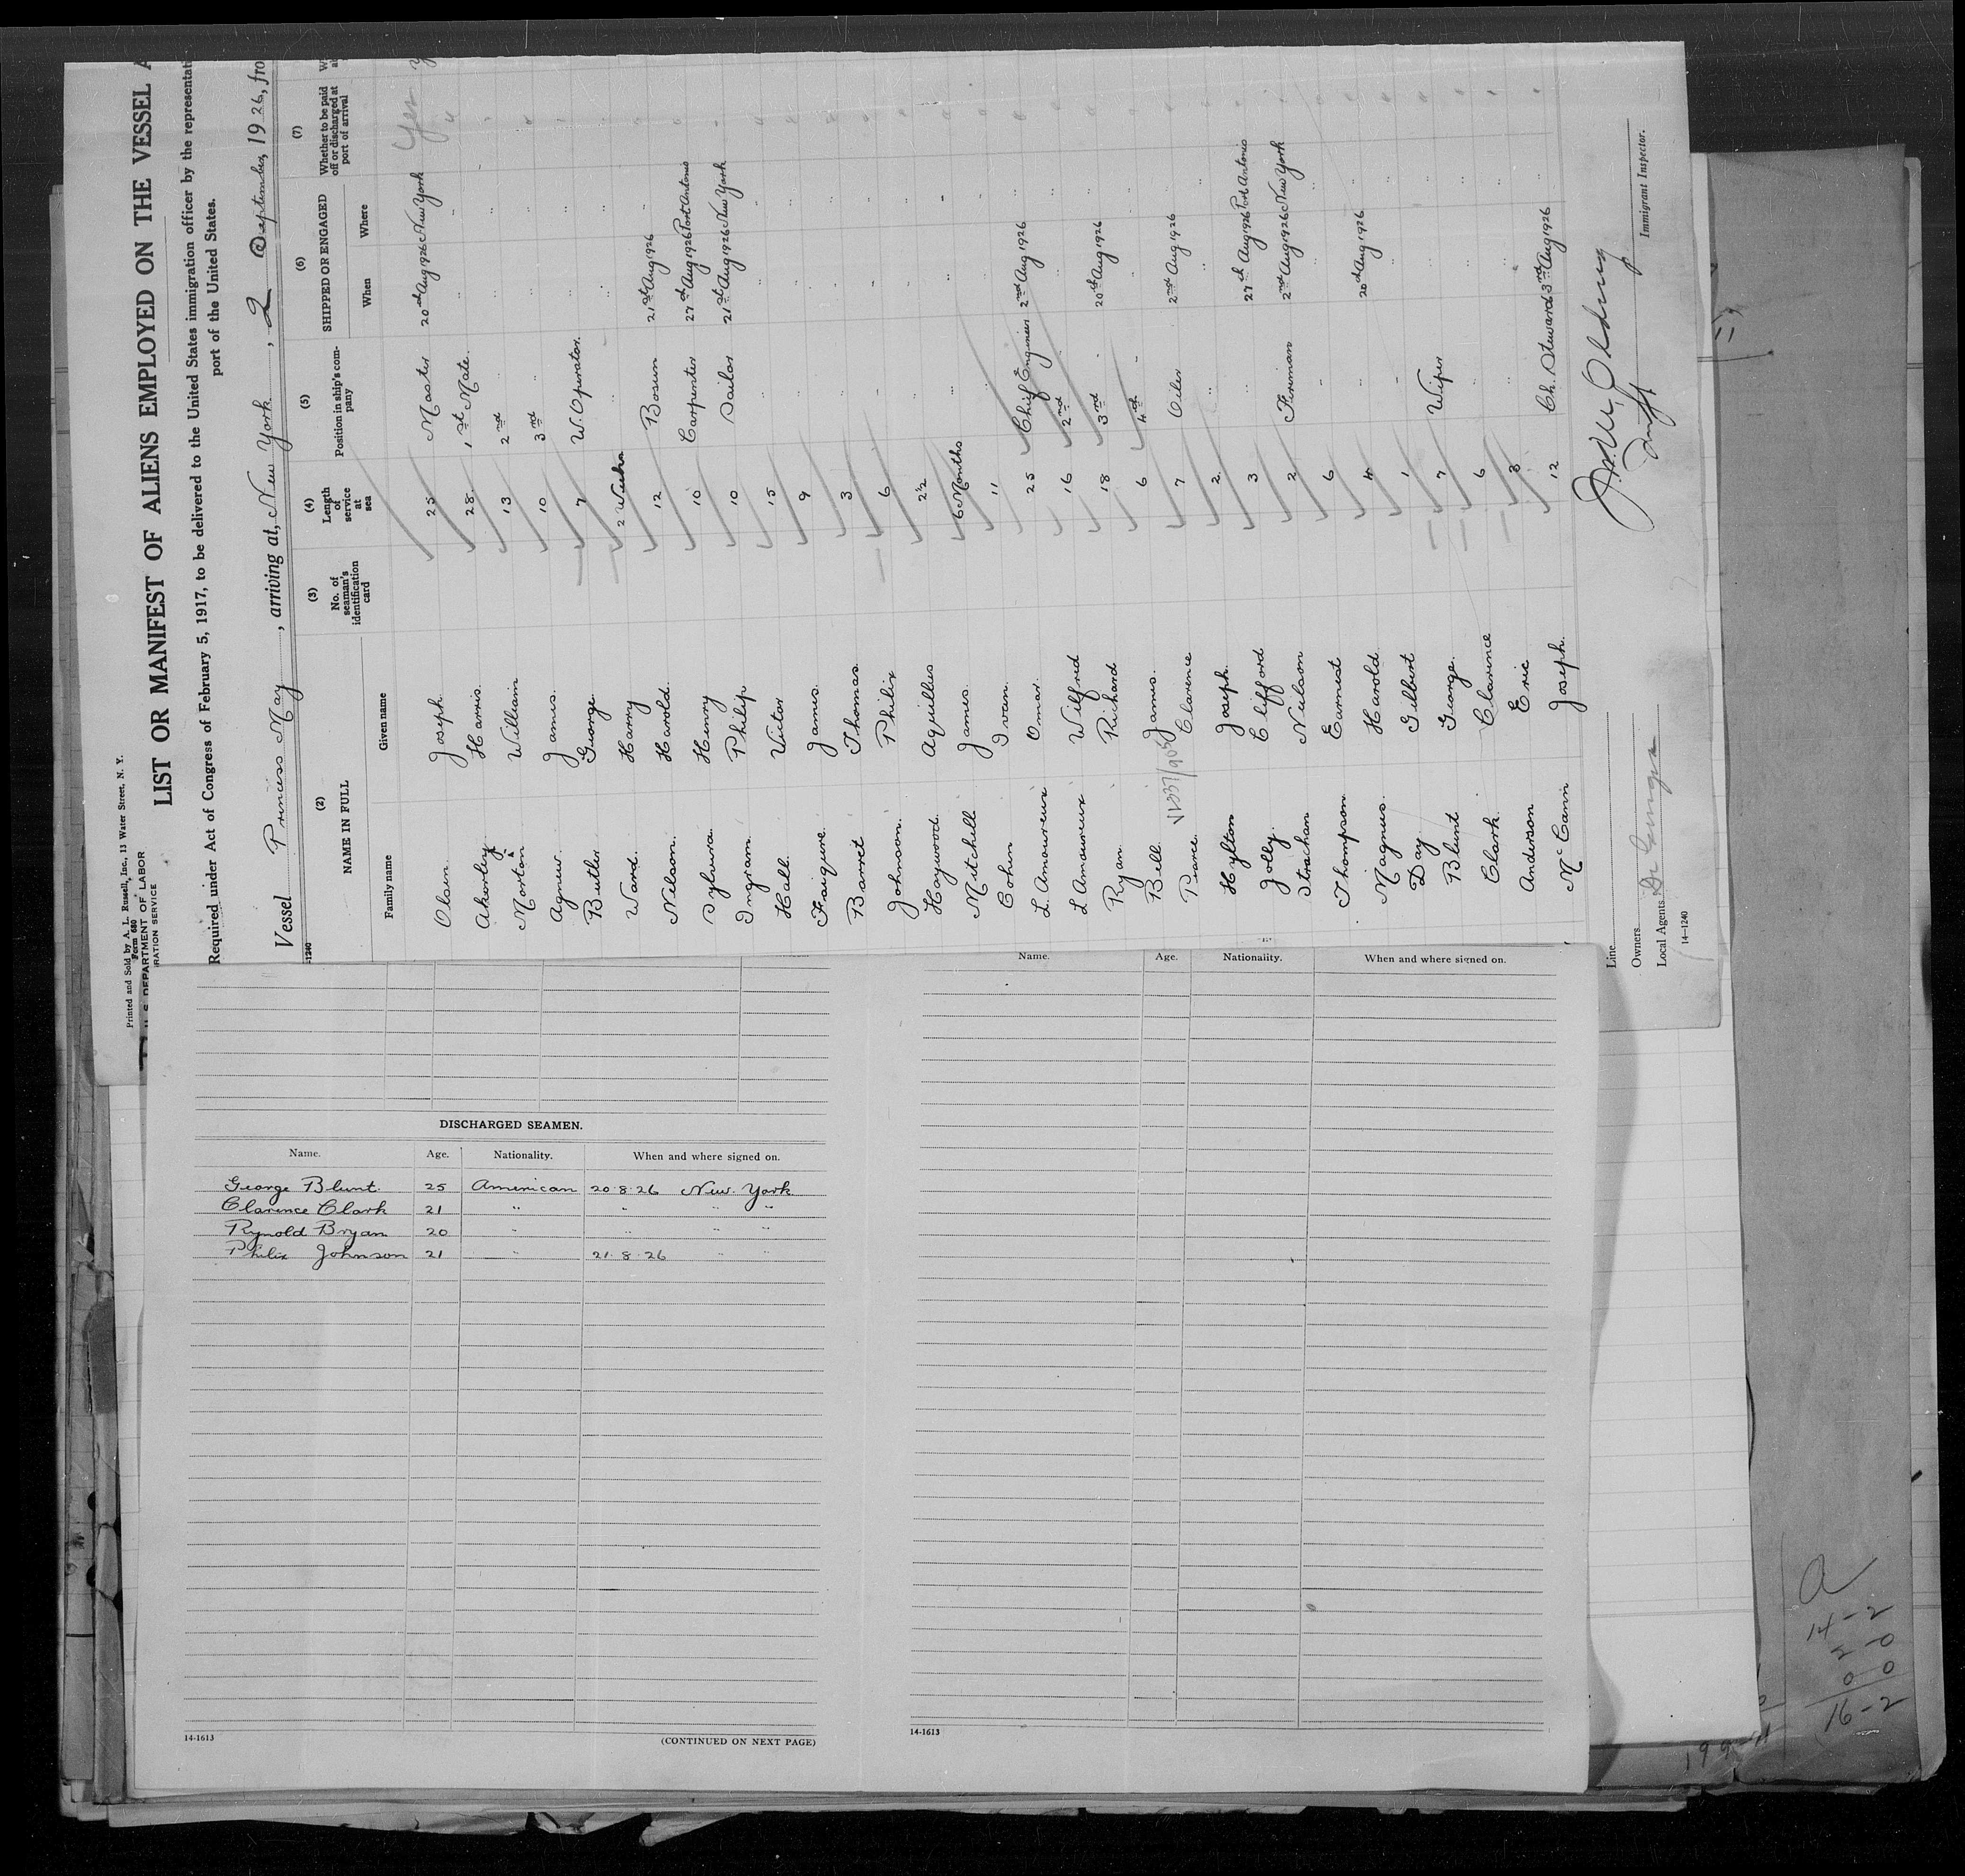 Printed and Sold by A. L. Russell, Inc., 13 Water Street, N. Y.
Form 680
U. S. DEPARTMENT OF LABOR
RATION SERVICE
LIST OR MANIFEST OF ALIENS EMPLOYED ON THE VESSEL A
Required under Act of Congress of February 5, 1917, to be delivered to the United States immigration officer by the representati
port of the United States.
Vessel Princess May, arriving at, New York, 2 September, 1926, fro
-1240
(2) (3) (4) (5) (6) (7)
NAME IN FULL No. of seaman's identification card Length of service at sea Position in ship's company SHIPPED OR ENGAGED Whether to be paid off or discharged at port of arrival
Family name Given name When Where
Olsen Joseph. 25 Master 20nd Aug 1926 New York Yes
Akerley Harris. 28 1st Mate. " "
Morton William 13 2nd " "
Agnew. James. 10 3rd " "
Butler George 7 W. Operator. " "
Ward. Harry 2 Weeks " " "
Nilson. Harold. 12 Bosun 21st Aug 1926 "
Sylvura Henry 10 Carpenter 27nd Aug 1926 Port Antonio
Ingram Philip 10 Sailor 21st Aug 1926 New York
Hall Victor 15 " " "
Faiqure James. 9 " " "
Barret Thomas. 3 " " "
Johnson. Philix 6 " " "
Haywood. Aquillus 2½ " " "
Mitchell James. 6 Months " " "
Cohen Ivan. 11 " " "
L. Amoureux Omar. 25 Chief Engineer 2nd Aug 1926 "
L Amoureux Wilfred 16 2nd " "
Ryan Richard 18 3rd " 20th Aug 1926 "
Bell James. 6 4th " "
Pearce Clarence 7 Oiler 2nd Aug 1926 "
Hylton Joseph. 2 " " "
Jolly. Clifford 3 " 27th Aug 1926 Port Antonio
Strachan Neilson 2 Fireman 2nd Aug 1926 New York
Thompson Earnest 6 " " "
Magnus. Harold. 4 " 20nd Aug 1926 "
Day Gilbert 1 " " "
Blunt George. 7 Wiper " "
Clark. Clarence 6 " " "
Anderson Eric 3 " " "
McCann Joseph. 12 Ch. Steward 3rd Aug 1926 "
Line
Owners
Local Agents
14—1240
Immigrant Inspector.
Name. Age. Nationality. When and where signed on.
DISCHARGED SEAMEN.
Name. Age. Nationality. When and where signed on.
George Blunt. 25 American 20·8·26 New York
Clarence Clark 21 " " " "
Rynold Bryan 20 " " " "
Philix Johnson 21 " 21·8·26 " "
14-1613
(CONTINUED ON NEXT PAGE)
14-1613
a
14-2
2 0
0 0
16-2